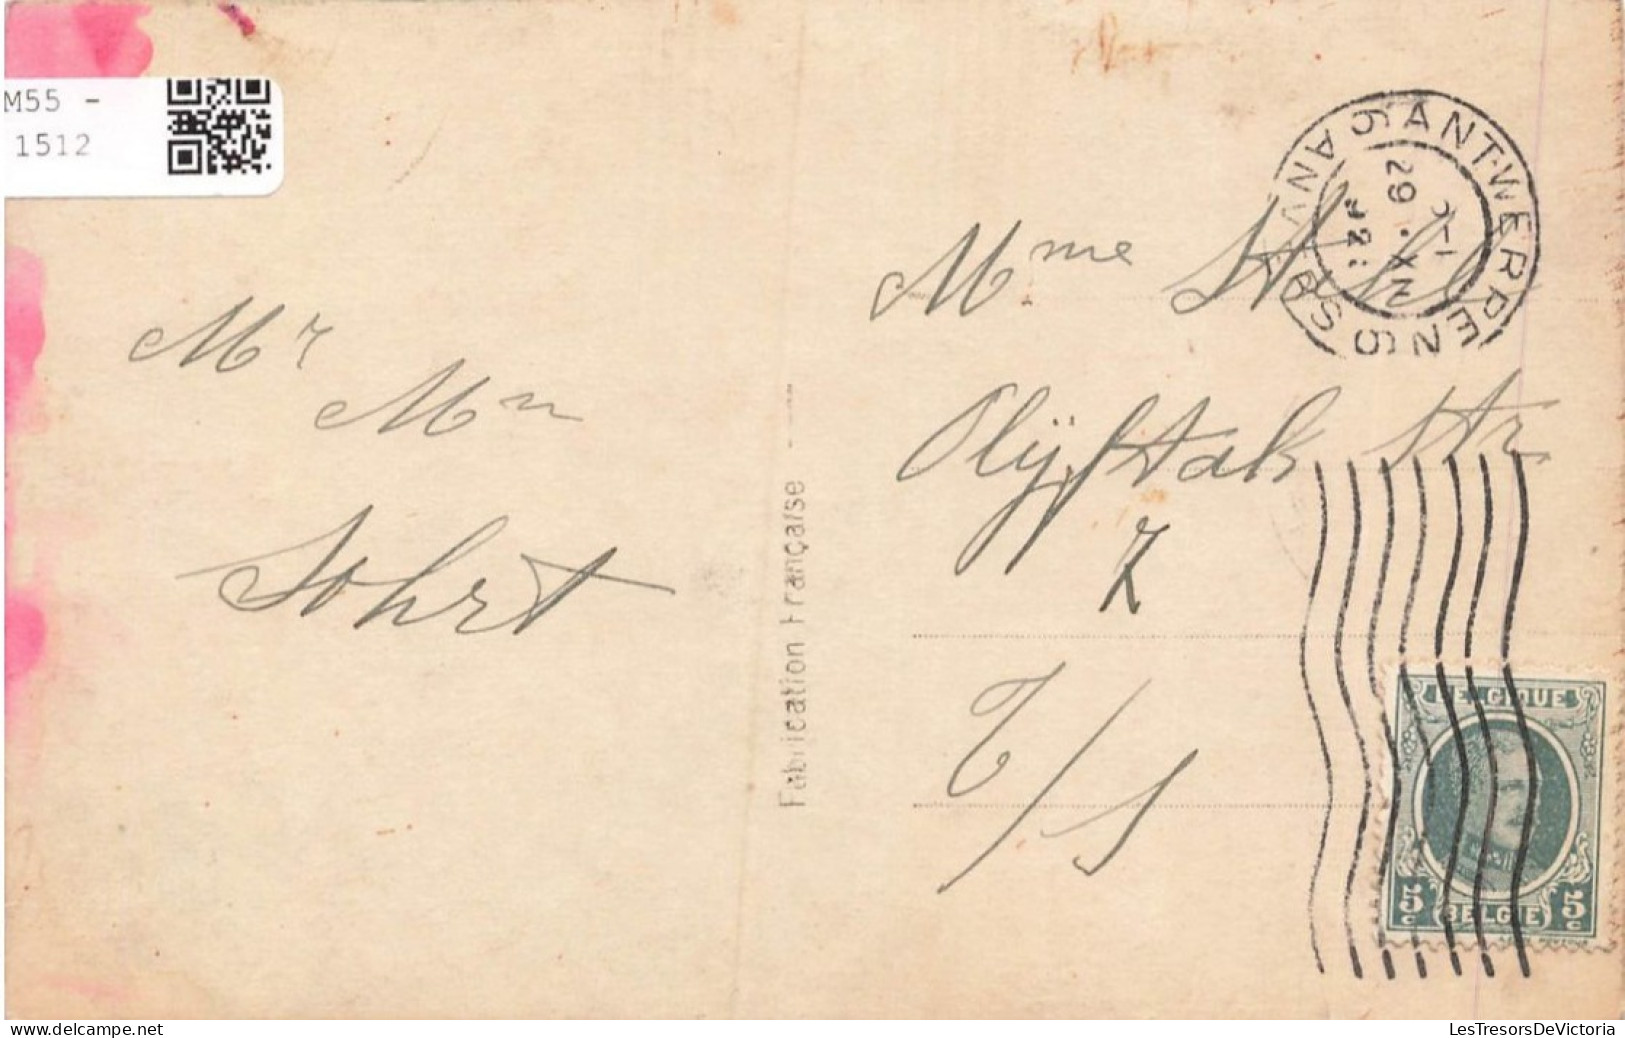 M55 -
1512
Mr
Mm
Sohrt
Fabrication Française
6 ANTWERPEN 6 ANVERS
29 XII
Mme
Olijftak str
7
E/S
BELGIQUE
5c BELGIE 5c
www.delcampe.net
LesTresorsDeVictoria